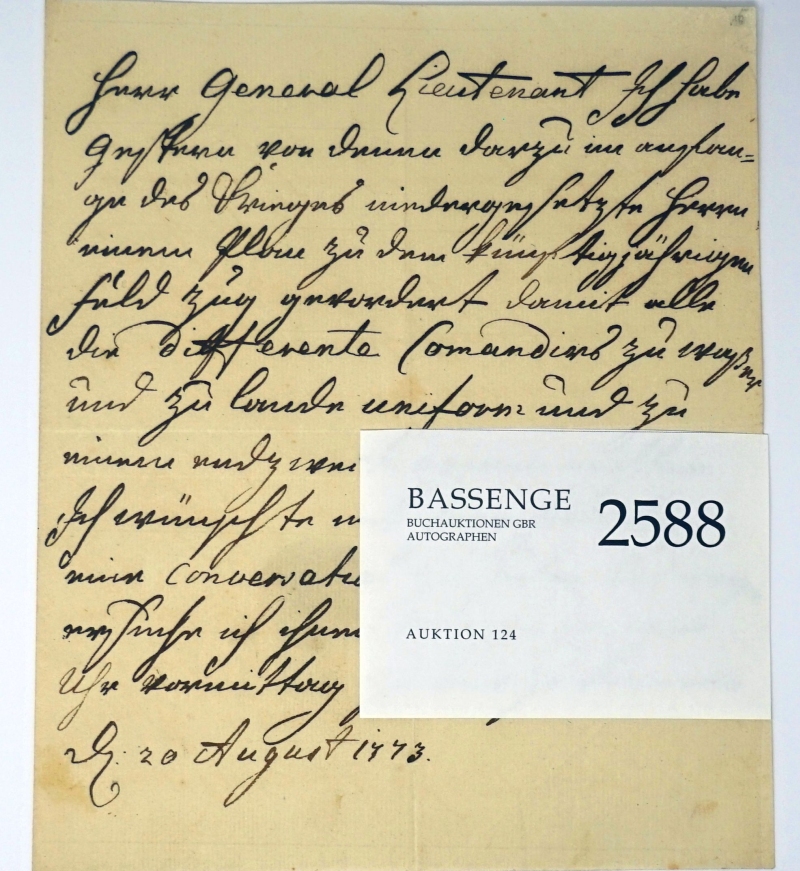 Herr General Lieutenant Ich habe
gestern von denen darzu im anfan=
ge des Krieges niedergesetzte Herrn
einem Plan zu dem künftigjährigen
Feld zug gevordert damit alle
die differente Comandirs zu waßer
und zu lande uniform und zu
einem endzwek
Ich wünschte
eine Conversati
ersuche ich ihnen
Uhr vormittag
d. 20 August 1773.
BASSENGE
BUCHAUKTIONEN GBR
AUTOGRAPHEN
2588
AUKTION 124